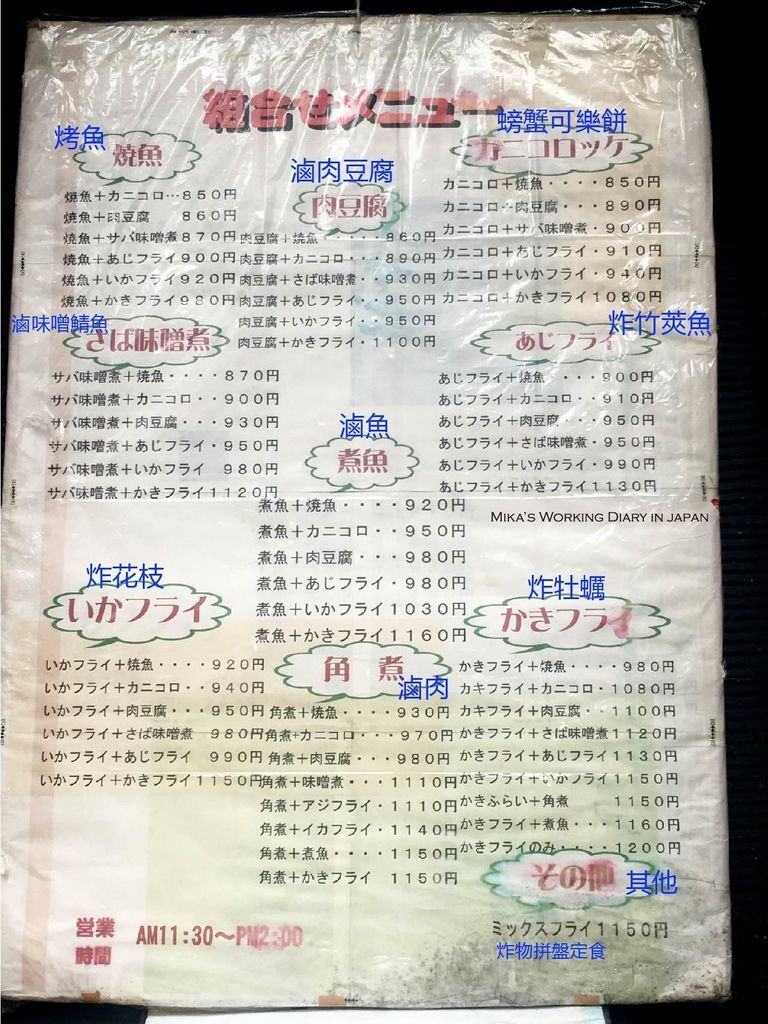 組合せメニュー
烤魚
焼魚
焼魚＋カニコロ…８５０円
焼魚＋肉豆腐　８６０円
焼魚＋サバ味噌煮８７０円
焼魚＋あじフライ９００円
焼魚＋いかフライ９２０円
焼魚＋かきフライ９８０円
滷肉豆腐
肉豆腐
肉豆腐＋焼魚・・・・８６０円
肉豆腐＋カニコロ・・・８９０円
肉豆腐＋さば味噌煮・・９３０円
肉豆腐＋あじフライ・・９５０円
肉豆腐＋いかフライ・・９５０円
肉豆腐＋かきフライ・１１００円
螃蟹可樂餅
カニコロッケ
カニコロ＋焼魚・・・・８５０円
カニコロ＋肉豆腐・・・８９０円
カニコロ＋サバ味噌煮・９００円
カニコロ＋あじフライ・９１０円
カニコロ＋いかフライ・９４０円
カニコロ＋かきフライ１０８０円
滷味噌鯖魚
さば味噌煮
サバ味噌煮＋焼魚・・・・８７０円
サバ味噌煮＋カニコロ・・９００円
サバ味噌煮＋肉豆腐・・・９３０円
サバ味噌煮＋あじフライ・９５０円
サバ味噌煮＋いかフライ　９８０円
サバ味噌煮＋かきフライ１１２０円
炸竹莢魚
あじフライ
あじフライ＋焼魚・・・・９００円
あじフライ＋カニコロ・・９１０円
あじフライ＋肉豆腐・・・９５０円
あじフライ＋さば味噌煮・９５０円
あじフライ＋いかフライ・９９０円
あじフライ＋かきフライ１１３０円
MIKA'S WORKING DIARY IN JAPAN
滷魚
煮魚
煮魚＋焼魚・・・・９２０円
煮魚＋カニコロ・・９５０円
煮魚＋肉豆腐・・・９８０円
煮魚＋あじフライ・９８０円
煮魚＋いかフライ１０３０円
煮魚＋かきフライ１１６０円
炸花枝
いかフライ
いかフライ＋焼魚・・・・９２０円
いかフライ＋カニコロ・・９４０円
いかフライ＋肉豆腐・・・９５０円
いかフライ＋さば味噌煮　９８０円
いかフライ＋あじフライ　９９０円
いかフライ＋かきフライ１１５０円
角煮
滷肉
角煮＋焼魚・・・・９３０円
角煮＋カニコロ・・９７０円
角煮＋肉豆腐・・・９８０円
角煮＋味噌煮・・・１１１０円
角煮＋アジフライ・１１１０円
角煮＋イカフライ・１１４０円
角煮＋煮魚・・・・１１５０円
角煮＋かきフライ　１１５０円
炸牡蠣
かきフライ
かきフライ＋焼魚・・・・９８０円
カキフライ＋カニコロ・１０８０円
カキフライ＋肉豆腐・・１１００円
かきフライ＋さば味噌煮１１２０円
かきフライ＋あじフライ１１３０円
かきフライ＋いかフライ１１５０円
かきふらい＋角煮　　１１５０円
かきフライ＋煮魚・・・１１６０円
かきフライのみ・・・・１２００円
その他
其他
ミックスフライ１１５０円
炸物拼盤定食
営業時間 AM11:30～PM2:00